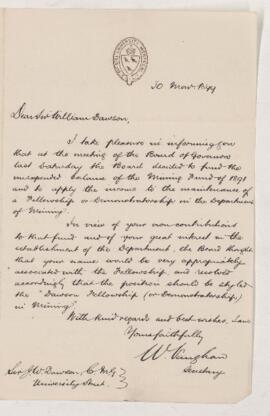 30 Nov. 1899
Dear Sir William Dawson,
I take pleasure in informing you
that at the meeting of the Board of Governors
last Saturday the Board decided to fund the
unexpended balance of the Mining Fund of 1891
and to apply the income to the maintenance of
a Fellowship or Demonstratorship in the Department
of Mining.
In view of your own contributions
to that fund and of your great interest in the
establishment of the Department, the Board thought
that your name would be very appropriately
associated with the Fellowship, and resolved
accordingly that the position should be styled
the "Dawson Fellowship (or Demonstratorship)
in Mining".
With kind regards and best wishes, I am
Yours faithfully
W. Vaughan
Secretary
Sir J. W. Dawson, C.M.G.
University Street.